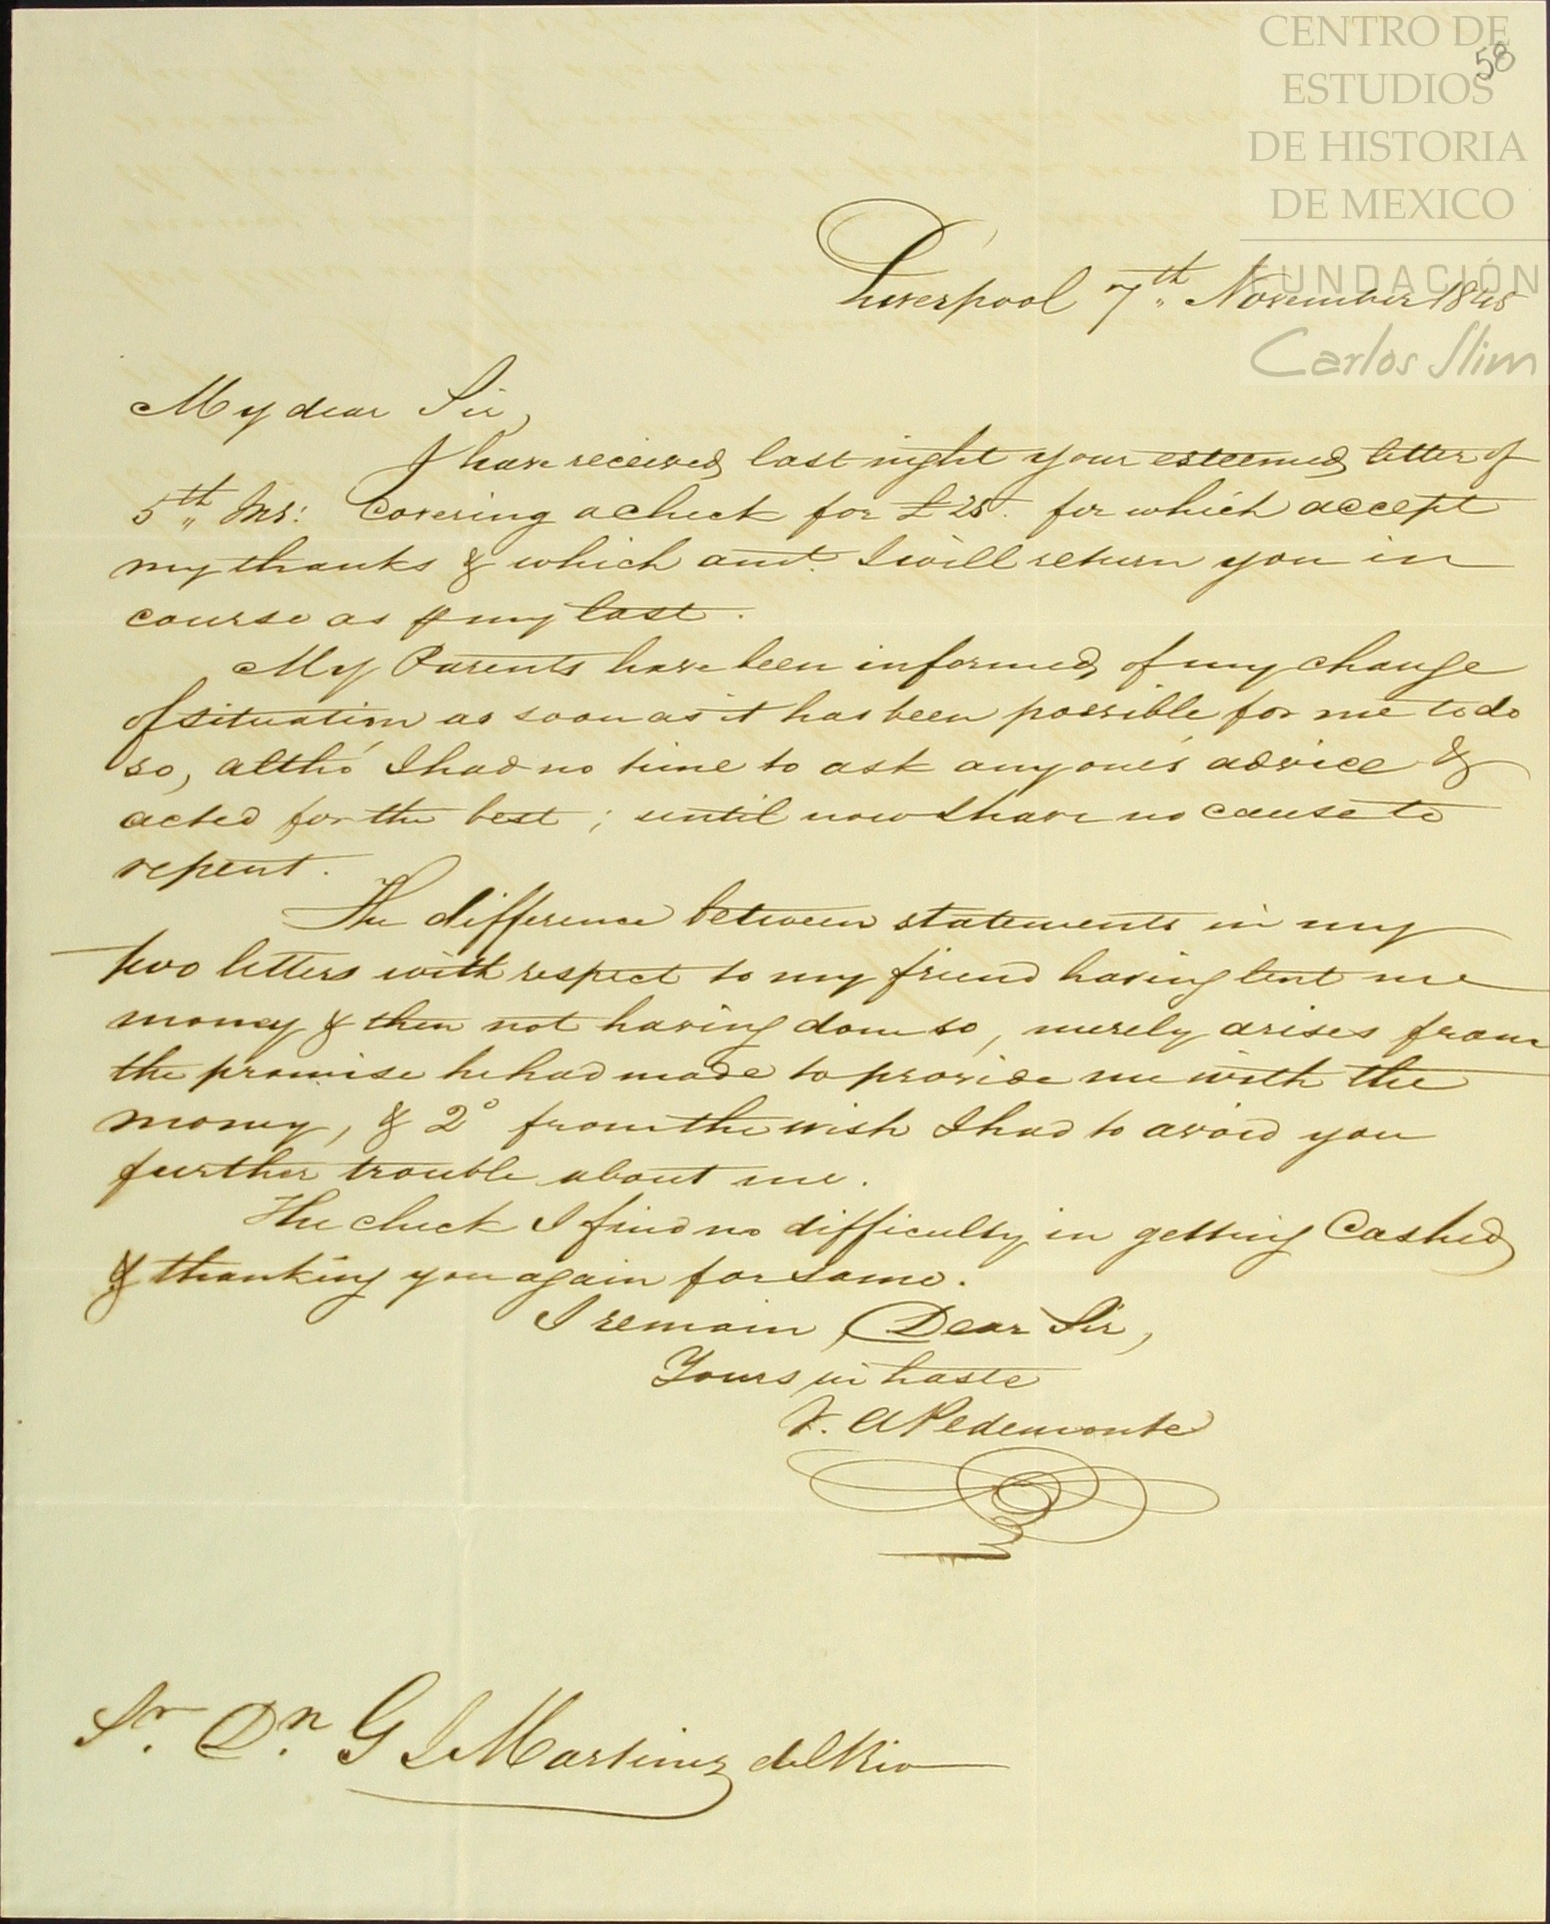 CENTRO DE
ESTUDIOS
DE HISTORIA
DE MEXICO
FUNDACIÓN
Carlos Slim
58
Liverpool 7th November 1845
My dear Sir,
I have received last night your esteemed letter of
5th Ins: Covering a check for £25. for which accept
my thanks & which amt. I will return you in
course as my last.
My Parents have been informed of my change
of situation as soon as it has been possible for me to do
so, altho' I had no time to ask anyone's advice &
acted for the best; until now I have no cause to
repent.
The difference between statements in my
two letters with respect to my friend having lent me
money & then not having done so, merely arises from
the promise he had made to provide me with the
money, & 2° from the wish I had to avoid you
further trouble about me.
The check I find no difficulty in getting Cashed
& thanking you again for same.
I remain Dear Sir,
Yours in haste
A Pedemonte
Sr. Dn. G I Martinez del Rio